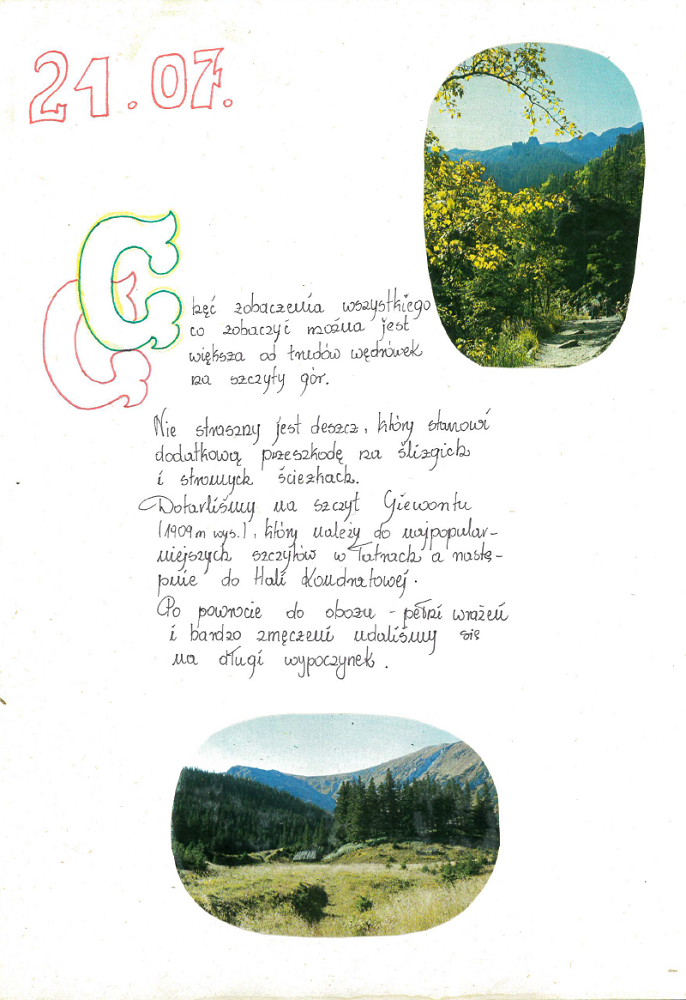 21.07.
Chęć zobaczenia wszystkiego
co zobaczyć można jest
większa od trudów wędrówek
na szczyty gór.
Nie straszny jest deszcz, który stanowi
dodatkową przeszkodę na ślizgich
i stromych ścieżkach.
Dotarliśmy na szczyt Giewontu
(1909 m wys.), który należy do najpopular-
niejszych szczytów w Tatrach a nastę-
pnie do Hali Kondratowej.
Po powrocie do obozu - pełni wrażeń
i bardzo zmęczeni udaliśmy się
na długi wypoczynek.